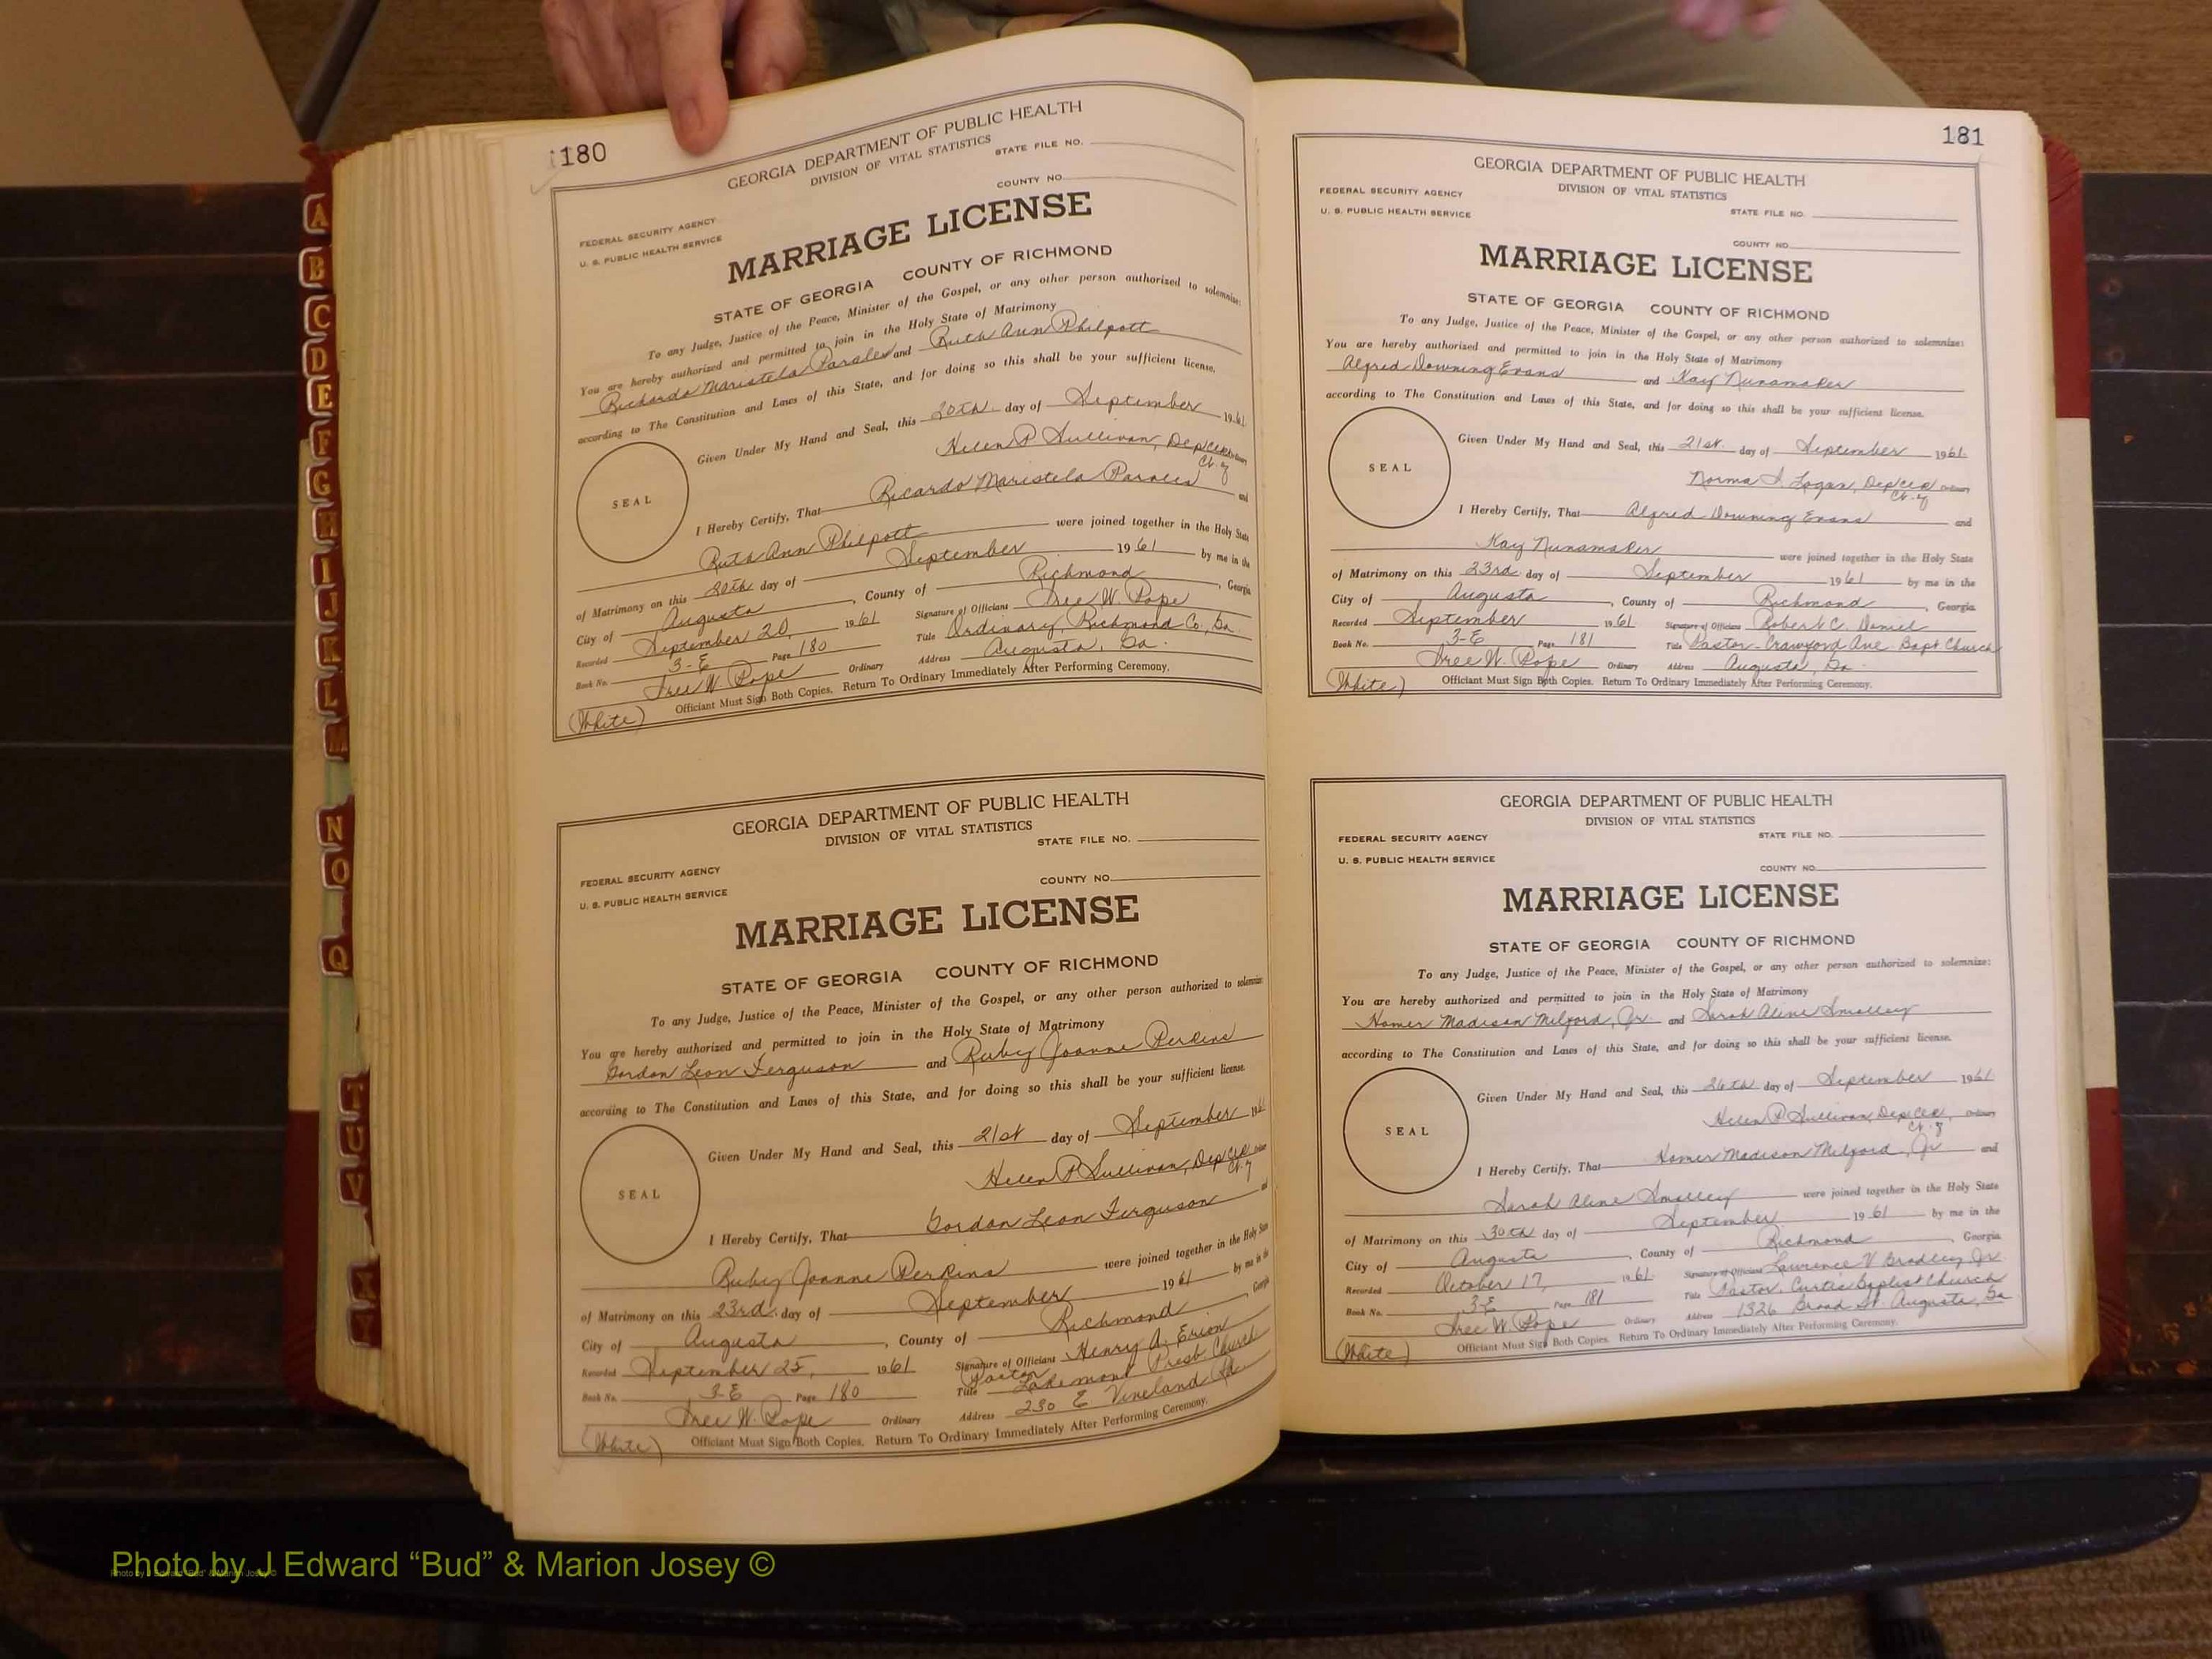 180
GEORGIA DEPARTMENT OF PUBLIC HEALTH
DIVISION OF VITAL STATISTICS
STATE FILE NO.
COUNTY NO.
FEDERAL SECURITY AGENCY
U. S. PUBLIC HEALTH SERVICE
MARRIAGE LICENSE
STATE OF GEORGIA COUNTY OF RICHMOND
To any Judge, Justice of the Peace, Minister of the Gospel, or any other person authorized to solemnize:
You are hereby authorized and permitted to join in the Holy State of Matrimony
Richardo Maristela Parales and Ruth Ann Philpott
according to The Constitution and Laws of this State, and for doing so this shall be your sufficient license.
Given Under My Hand and Seal, this 20th day of September 1961
Helen P Sullivan, Dep Clk
Ct. of
SEAL
I Hereby Certify, That Ricardo Maristela Parales and
Ruth Ann Philpott were joined together in the Holy State
of Matrimony on this 20th day of September 1961 by me in the
City of Augusta, County of Richmond, Georgia
Recorded September 20, 1961 Signature of Officiant Tree W. Pope
Book No. 3-E Page 180 Title Ordinary, Richmond Co., Ga.
Tree W. Pope Ordinary Address Augusta, Ga.
(White) Officiant Must Sign Both Copies. Return To Ordinary Immediately After Performing Ceremony.
GEORGIA DEPARTMENT OF PUBLIC HEALTH
DIVISION OF VITAL STATISTICS
STATE FILE NO.
FEDERAL SECURITY AGENCY
COUNTY NO.
U. S. PUBLIC HEALTH SERVICE
MARRIAGE LICENSE
STATE OF GEORGIA COUNTY OF RICHMOND
To any Judge, Justice of the Peace, Minister of the Gospel, or any other person authorized to solemnize:
You are hereby authorized and permitted to join in the Holy State of Matrimony
Gordon Leon Ferguson and Ruby Joanne Perkins
according to The Constitution and Laws of this State, and for doing so this shall be your sufficient license.
Given Under My Hand and Seal, this 21st day of September 1961
Helen P Sullivan, Dep Clk
Ct. of
SEAL
I Hereby Certify, That Gordon Leon Ferguson and
Ruby Joanne Perkins were joined together in the Holy State
of Matrimony on this 23rd day of September 1961 by me in the
City of Augusta, County of Richmond, Georgia
Recorded September 25, 1961 Signature of Officiant Henry A. Erion
Book No. 3-E Page 180 Title Pastor Lakemont Presb Church
Tree W. Pope Ordinary Address 230 E Vineland Rd
(White) Officiant Must Sign Both Copies. Return To Ordinary Immediately After Performing Ceremony.
181
GEORGIA DEPARTMENT OF PUBLIC HEALTH
DIVISION OF VITAL STATISTICS
FEDERAL SECURITY AGENCY
U. S. PUBLIC HEALTH SERVICE
STATE FILE NO.
COUNTY NO.
MARRIAGE LICENSE
STATE OF GEORGIA COUNTY OF RICHMOND
To any Judge, Justice of the Peace, Minister of the Gospel, or any other person authorized to solemnize:
You are hereby authorized and permitted to join in the Holy State of Matrimony
Alfred Downing Evans and Kay Nunamaker
according to The Constitution and Laws of this State, and for doing so this shall be your sufficient license.
Given Under My Hand and Seal, this 21st day of September 1961
Norma I. Logan, Dep Clk Ordinary
Ct. of
SEAL
I Hereby Certify, That Alfred Downing Evans and
Kay Nunamaker were joined together in the Holy State
of Matrimony on this 23rd day of September 1961 by me in the
City of Augusta, County of Richmond, Georgia
Recorded September 1961 Signature of Officiant Robert C. Daniel
Book No. 3-E Page 181 Title Pastor-Crawford Ave. Bapt Church
Tree W. Pope Ordinary Address Augusta, Ga.
(White) Officiant Must Sign Both Copies. Return To Ordinary Immediately After Performing Ceremony.
GEORGIA DEPARTMENT OF PUBLIC HEALTH
DIVISION OF VITAL STATISTICS
FEDERAL SECURITY AGENCY
STATE FILE NO.
U. S. PUBLIC HEALTH SERVICE
COUNTY NO.
MARRIAGE LICENSE
STATE OF GEORGIA COUNTY OF RICHMOND
To any Judge, Justice of the Peace, Minister of the Gospel, or any other person authorized to solemnize:
You are hereby authorized and permitted to join in the Holy State of Matrimony
Homer Madison Milford, Jr. and Sarah Aline Smalley
according to The Constitution and Laws of this State, and for doing so this shall be your sufficient license.
Given Under My Hand and Seal, this 26th day of September 1961
Helen P Sullivan, Dep Clk, Ordinary
Ct. of
SEAL
I Hereby Certify, That Homer Madison Milford, Jr and
Sarah Aline Smalley were joined together in the Holy State
of Matrimony on this 30th day of September 1961 by me in the
City of Augusta, County of Richmond, Georgia
Recorded October 17, 1961 Signature of Officiant Lawrence V Bradley Jr
Book No. 3-E Page 181 Title Pastor, Curtis Baptist Church
Tree W. Pope Ordinary Address 1326 Broad St. Augusta, Ga
(White) Officiant Must Sign Both Copies. Return To Ordinary Immediately After Performing Ceremony.
A
B
C
D
E
F
G
H
I
J
K
L
M
N
O
Q
T
U
V
X
Y
Photo by J Edward “Bud” & Marion Josey ©
Photo by J Edward “Bud” & Marion Josey ©